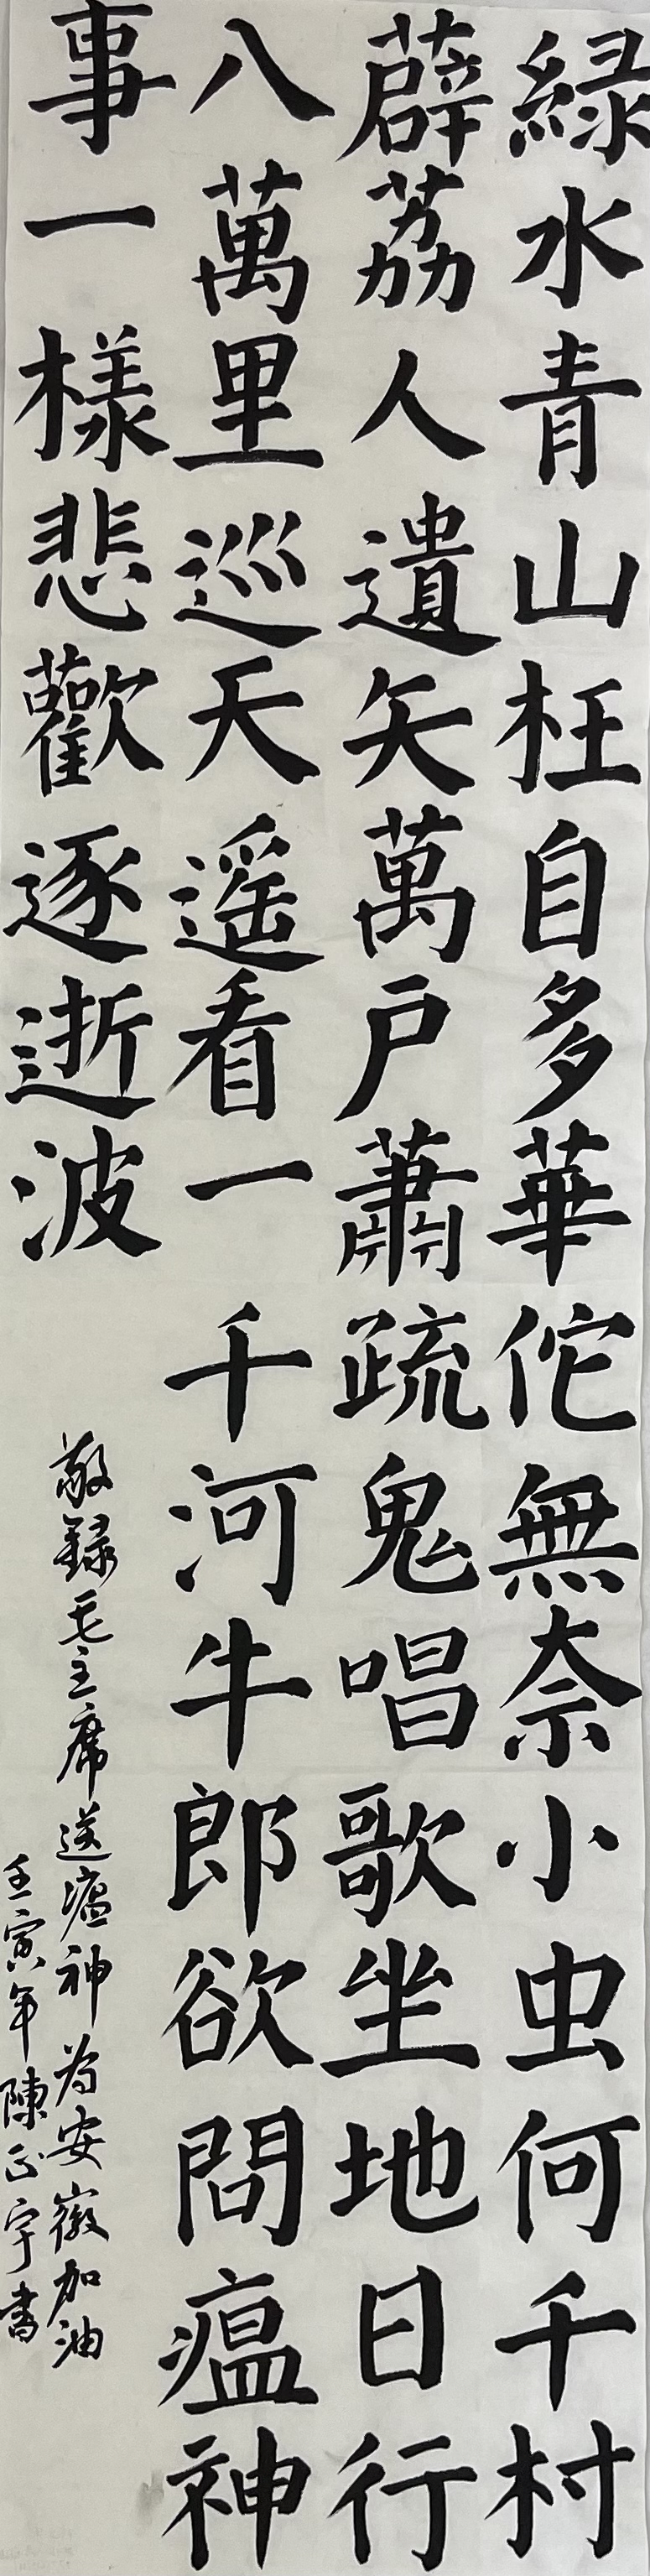 緑水青山枉自多華佗無奈小虫何千村
薜荔人遺矢萬户蕭疏鬼唱歌坐地日行
八萬里巡天遥看一千河牛郎欲問瘟神
事一樣悲歡逐逝波
敬録毛主席送瘟神为安徽加油
壬寅年陳正宇書